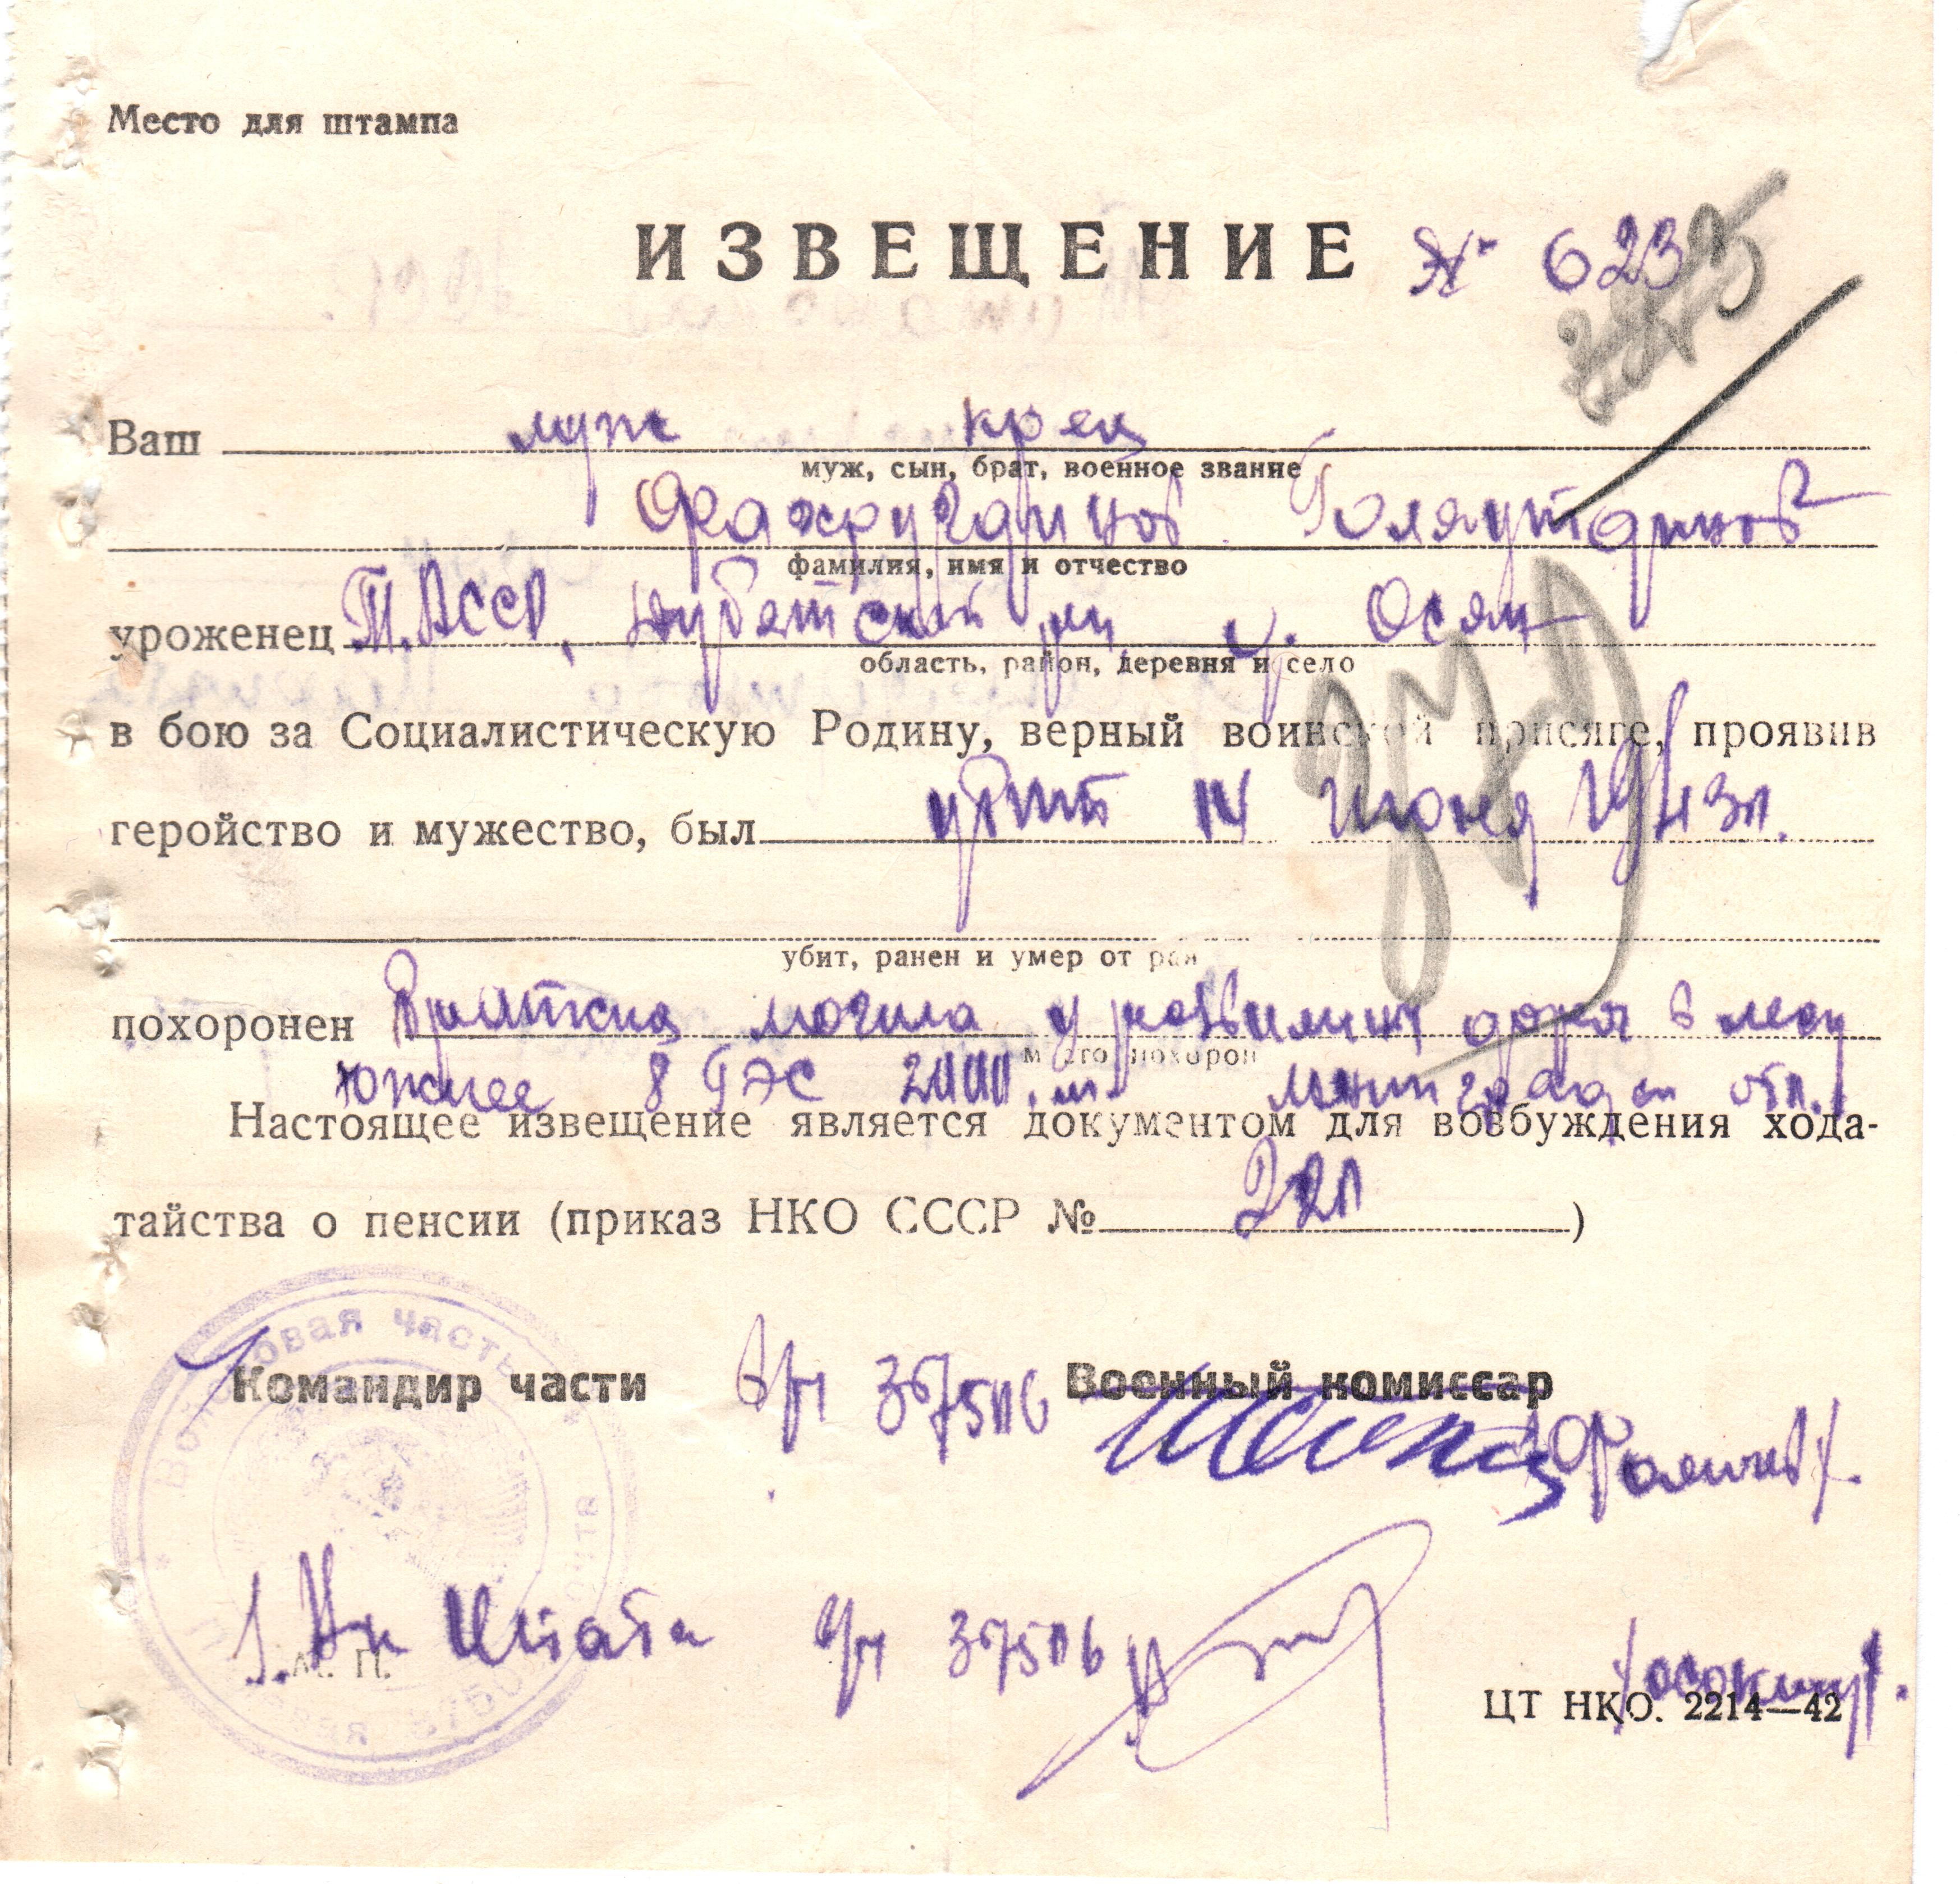 Место для штампа
ИЗВЕЩЕНИЕ № 623
Ваш муж кр-ец
муж, сын, брат, военное звание
фамилия, имя и отчество
уроженец Т.АССР,
область, район, деревня и село
в бою за Социалистическую Родину, верный воинской присяге, проявив
геройство и мужество, был убит 14 июня 1943 г.
убит, ранен и умер от ран
похоронен Братская могила у развилки дорог в лесу
место похорон
южнее 8 ГЭС 2000 м. Ленинград. обл.
Настоящее извещение является документом для возбуждения хода-
тайства о пенсии (приказ НКО СССР № 220)
Командир части в/ч 37506 Военный комиссар
Войсковая часть
1. Нач Штаба в/ч 37506
М. П.
ЦТ НКО. 2214—42